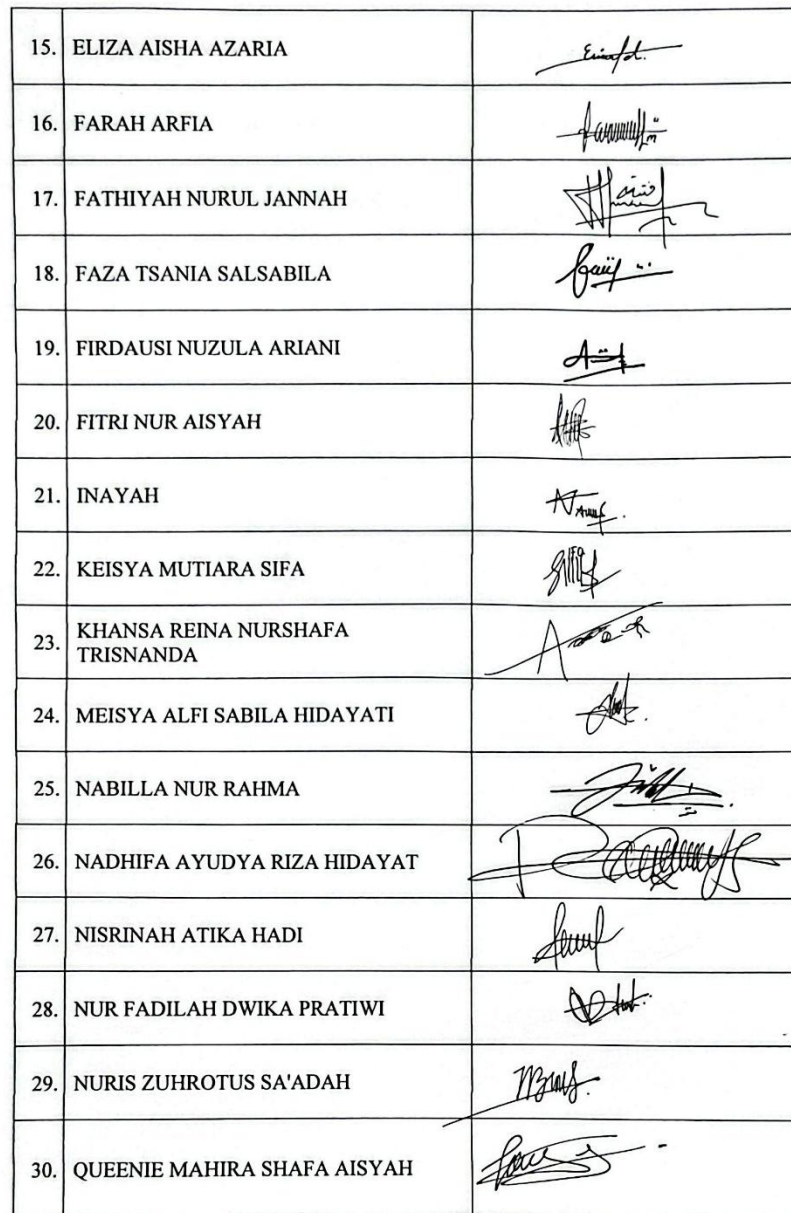 15. ELIZA AISHA AZARIA
16. FARAH ARFIA
17. FATHIYAH NURUL JANNAH
18. FAZA TSANIA SALSABILA
19. FIRDAUSI NUZULA ARIANI
20. FITRI NUR AISYAH
21. INAYAH
22. KEISYA MUTIARA SIFA
23. KHANSA REINA NURSHAFA
TRISNANDA
24. MEISYA ALFI SABILA HIDAYATI
25. NABILLA NUR RAHMA
26. NADHIFA AYUDYA RIZA HIDAYAT
27. NISRINAH ATIKA HADI
28. NUR FADILAH DWIKA PRATIWI
29. NURIS ZUHROTUS SA'ADAH
30. QUEENIE MAHIRA SHAFA AISYAH